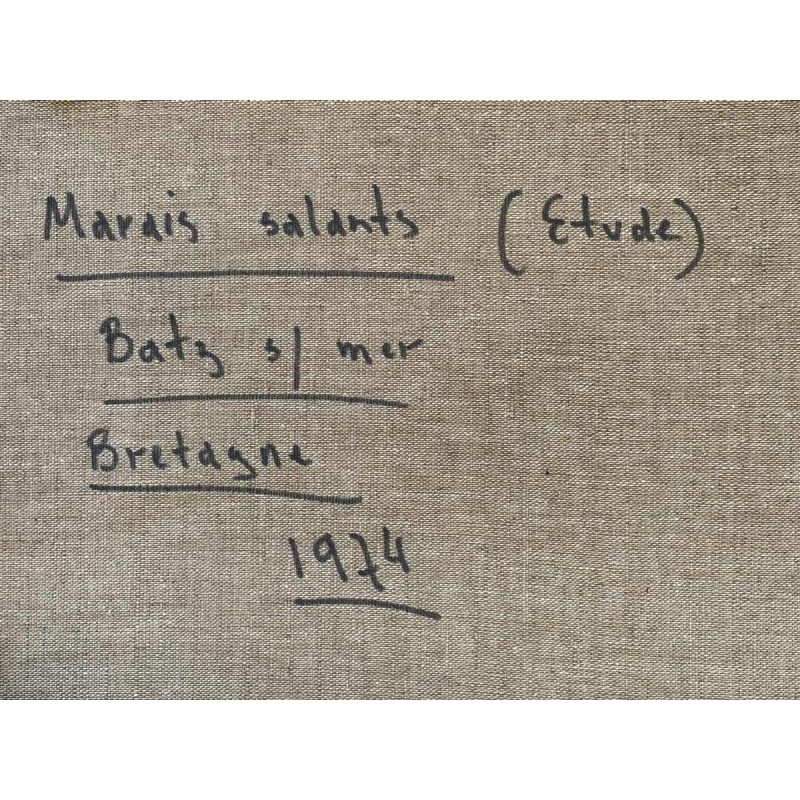 Marais salants (Etude)
Batz s/ mer
Bretagne
1974